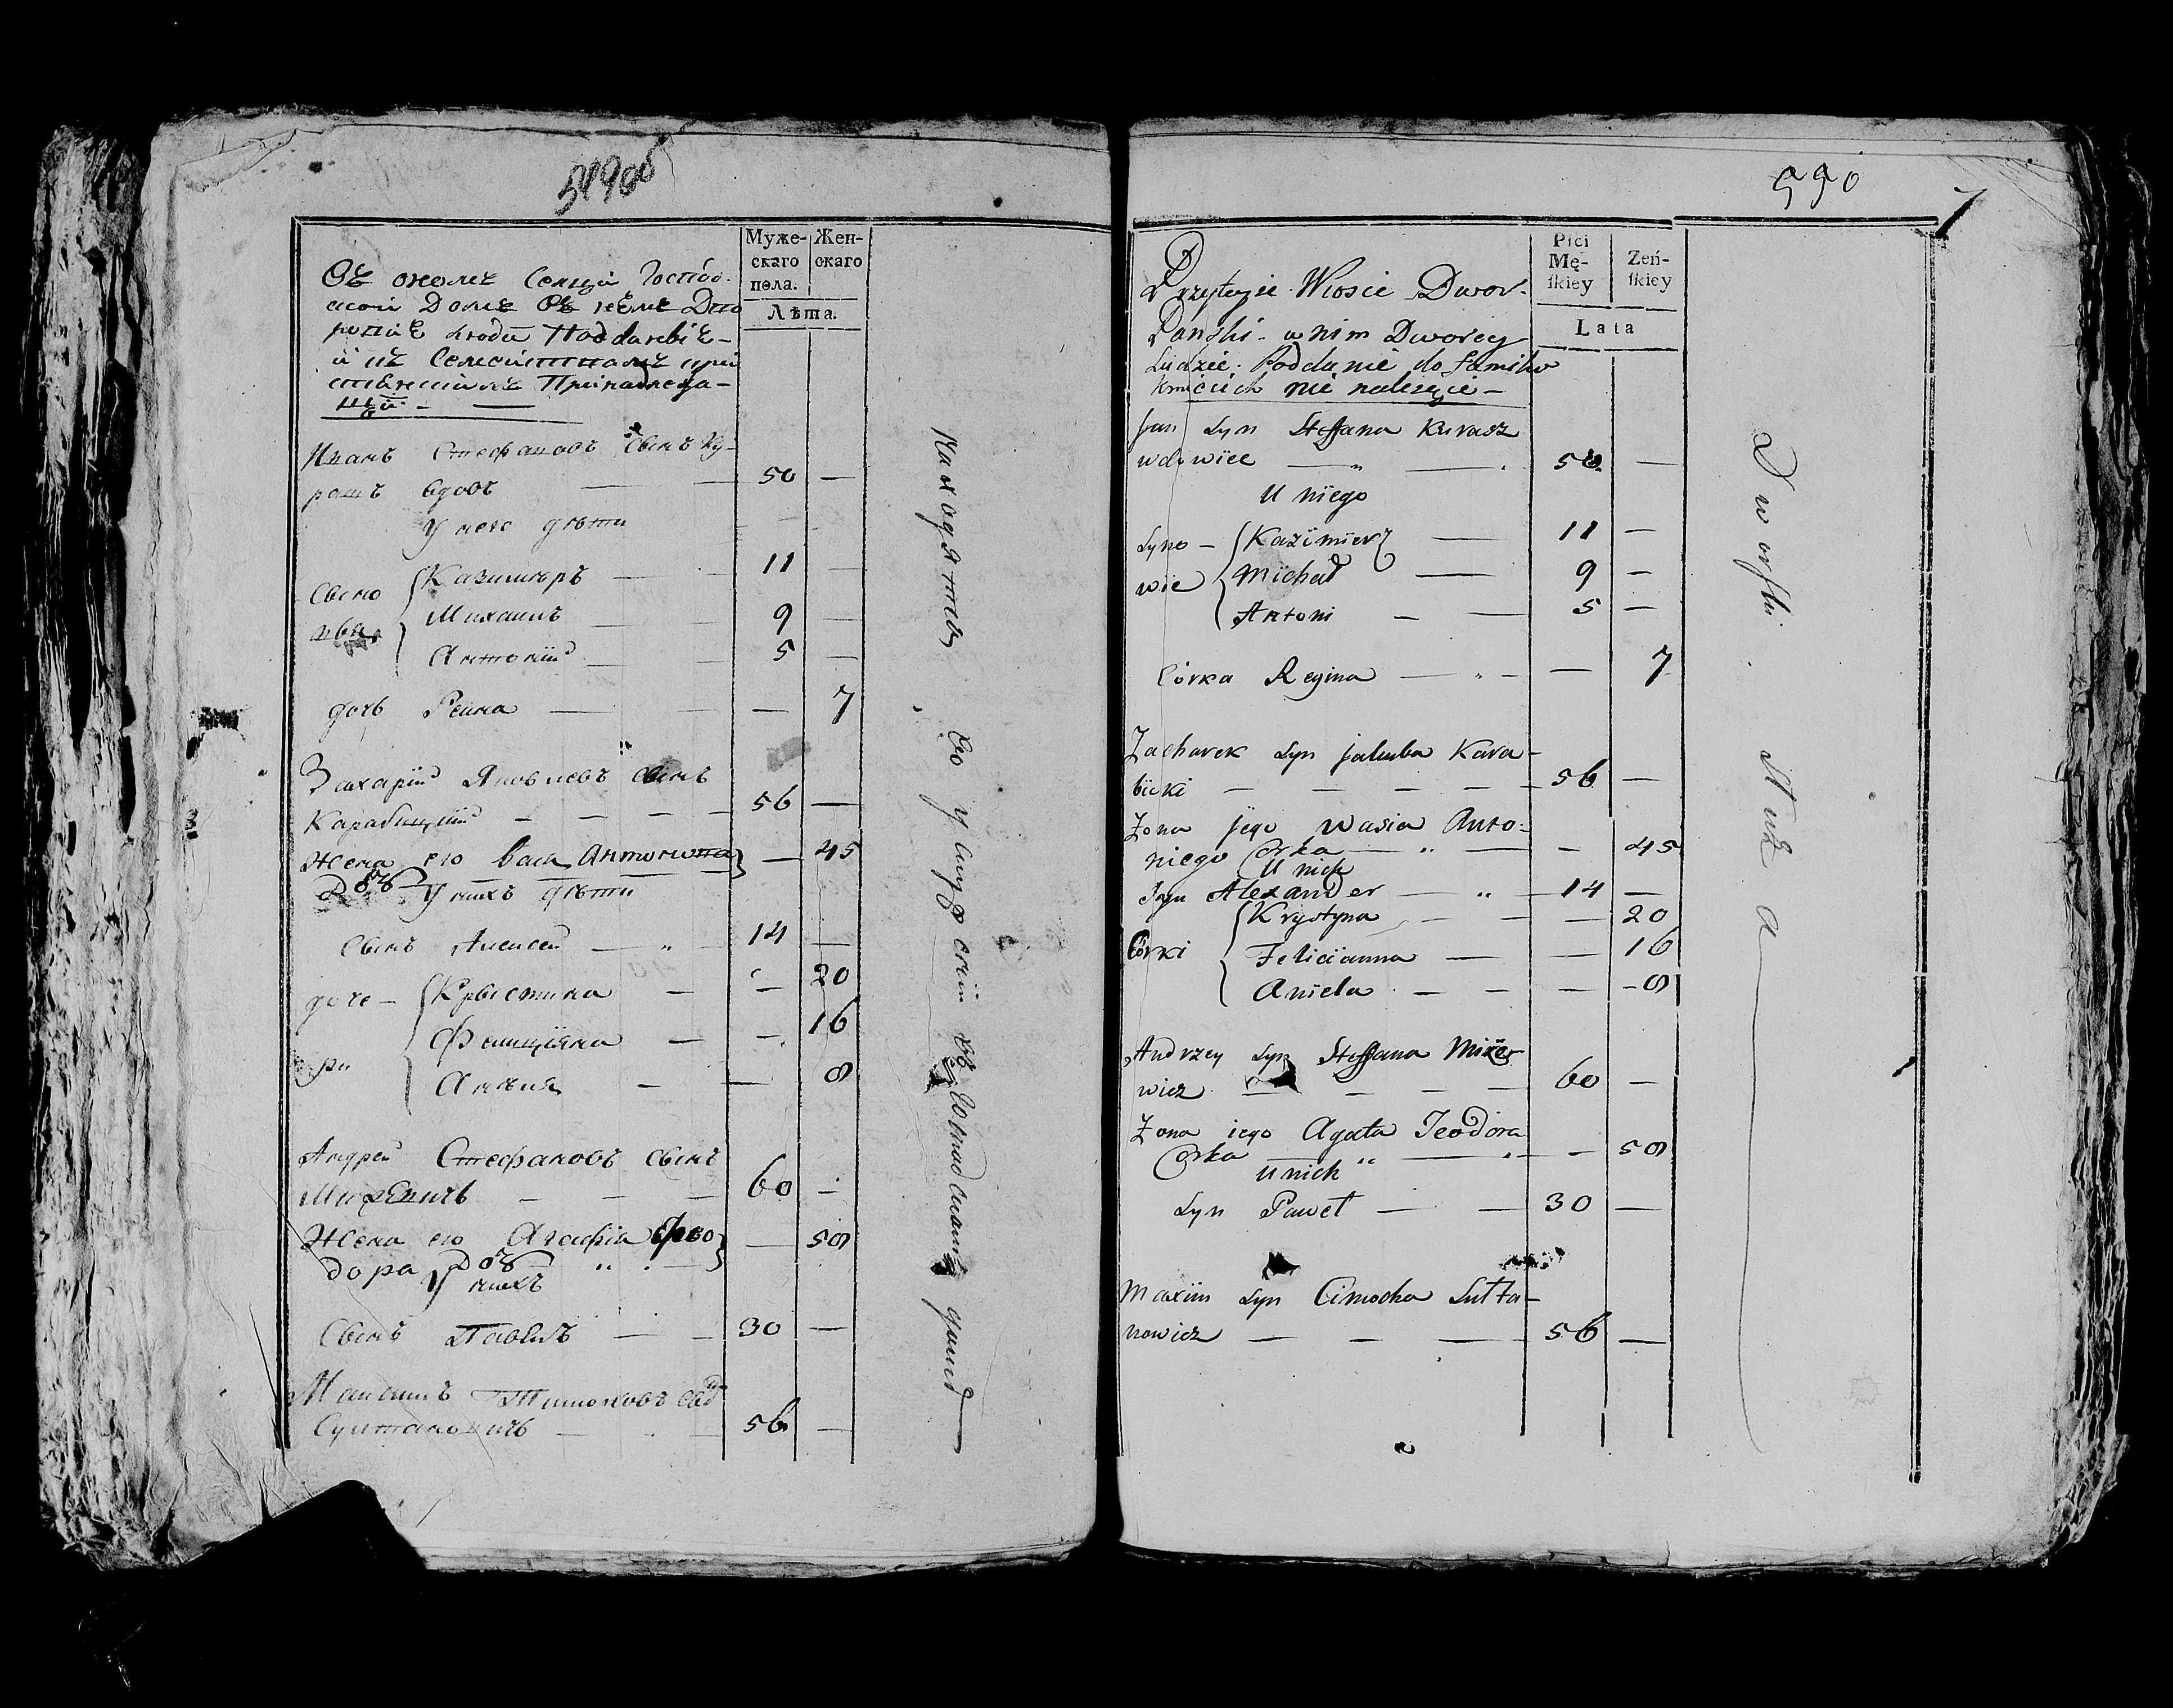 549об
Муже-
скаго
пола.
Жен-
скаго
Лѣта.
Въ ономъ Селцѣ Господ-
ской Домъ Въ немъ Дво
ровые люди
Иванъ Стефановъ сынъ Ку-
рашъ вдовъ — — 50 —
У него дѣти
Сыно
вья
Казимѣръ — — 11 —
Михаилъ — — 9 —
Антоній — — 5 —
дочь Реина — — — 7
Захарій Яковлевъ сынъ
Карабицкій — — — — 56 —
Жена его Васа Антонова — 45
дочь У нихъ дѣти
Сынъ Алексей — „ — 14 —
доче-
ри
Крыстина — — 20
Фелиціяна — — 16
Анѣля — — 8
Андрей Стефановъ сынъ
— — — 60 —
Жена его Агафія Фео
дора дочь — 58
У нихъ
Сынъ Павелъ — — 30 —
Максимъ Тимоховъ сынъ
Султановичъ — — 56 —
Находятся во услуженіи въ Господскомъ домѣ
590
7
Płci
Mę-
skiey
Żeń-
skiey
Lata
Przyteyże Wiosce Dwor
Pański. w nim Dworscy
Ludzie. Poddanie do familiow
kmiecich nie należące —
Jan Syn Steffana Kurasz
wdowiec — „ — 50 —
U niego
Syno-
wie
Kazimierz — 11 —
Michał — 9 —
Antoni — — 5 —
Córka Regina — „ — — 7
Zacharek Syn Jakuba Kara-
bicki — — — — — 56 —
Żona jego Wasia Anto-
niego Corka — „ — — 45
U nich
Syn Alexander — „ — 14 —
Córki
Krystyna — — — 20
Felicianna — — — 16
Aniela — — — 8
Andrzey Syn Steffana Mice-
wicz — — — 60 —
Żona iego Agata Teodora
Corka — „ — „ — — 58
U nich
Syn Paweł — — 30 —
Maxim Syn Cimocha Sułta-
nowicz — — — 56 —
Dworska Służba